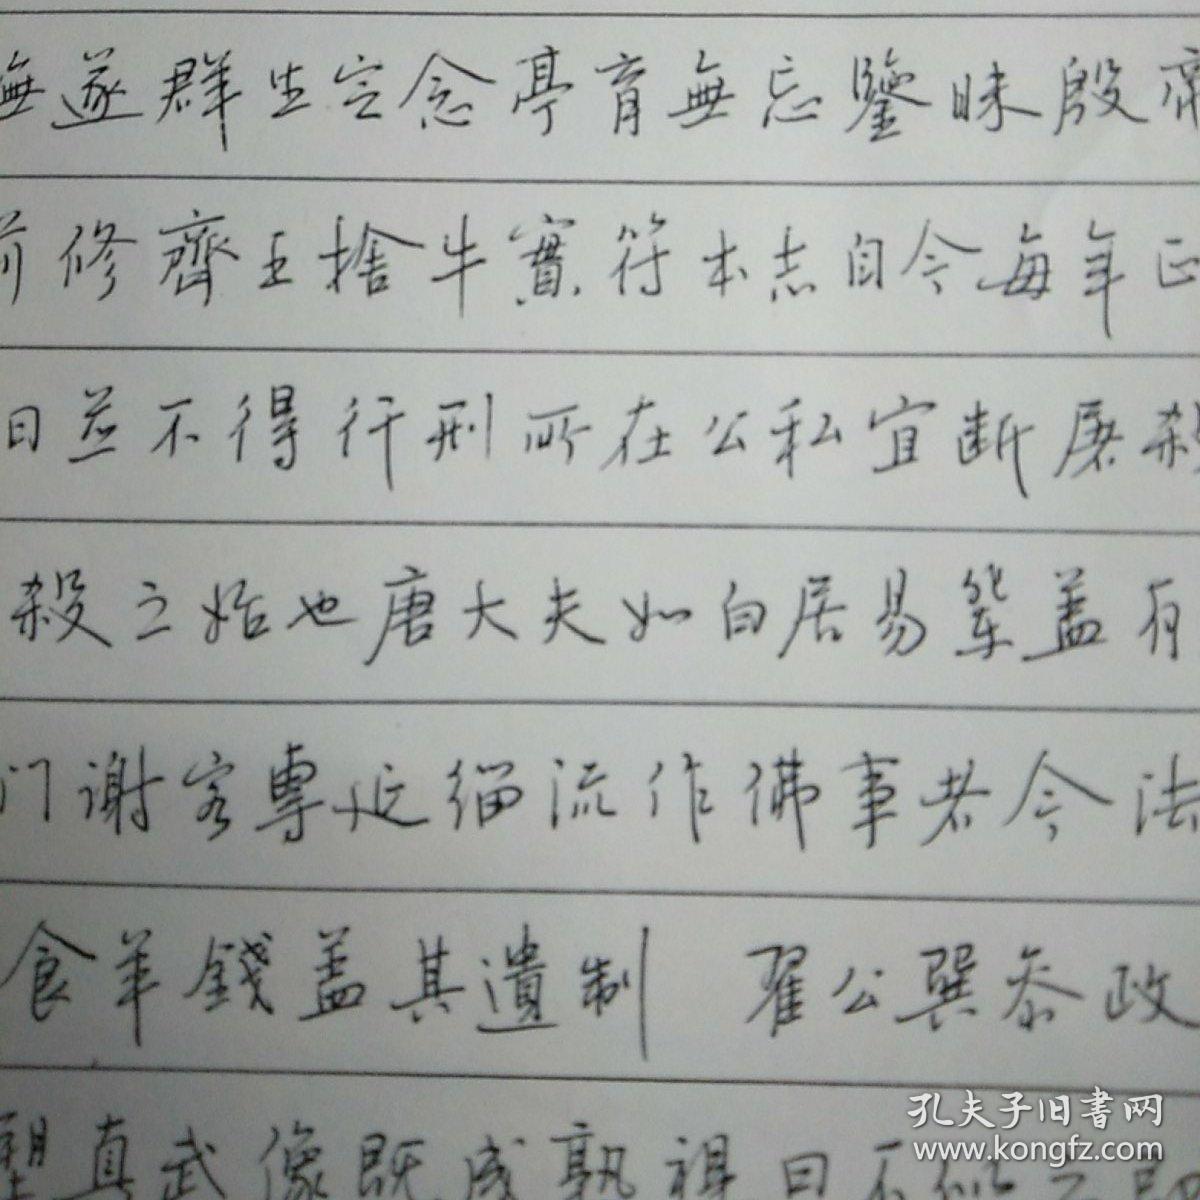 無遂群生言念亭育無忘鑒昧殷帝
前修齊王捨牛實符本志自今每年正
日並不得行刑所在公私宜斷屠殺
殺之始也唐大夫如白居易輩蓋有
门谢客專延緇流作佛事者今法
食羊錢盖其遺制 翟公巽參政
塑真武像既成孰視曰不似
孔夫子旧书网
www.kongfz.com